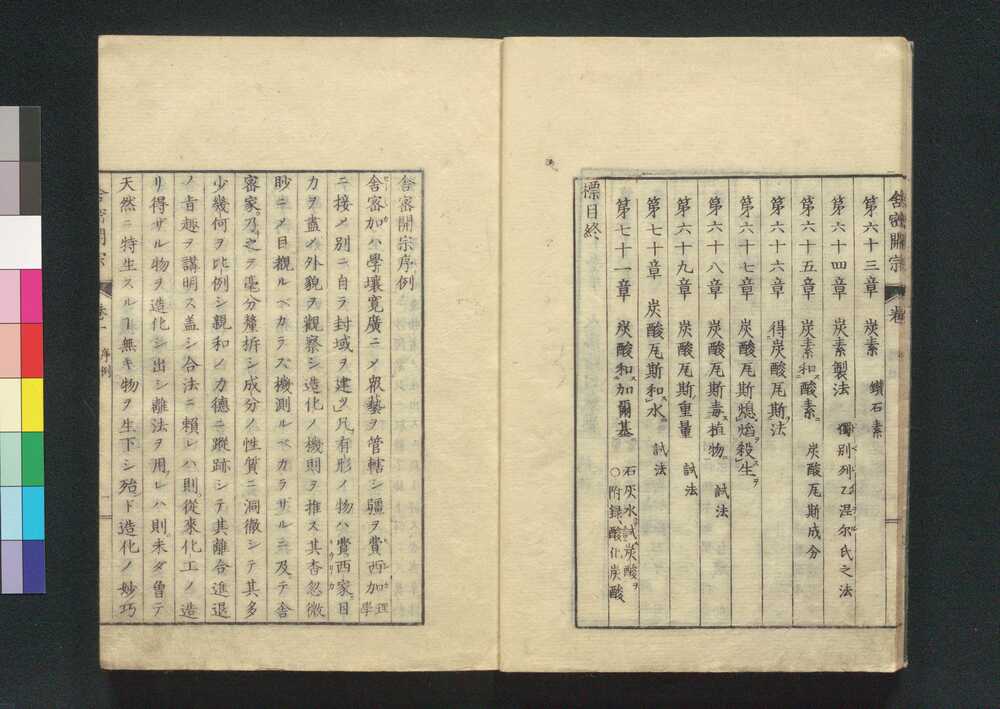 舎密開宗 巻
第六十三章 炭素 鑚石素
第六十四章 炭素製法 獨別列乙涅尔氏之法
第六十五章 炭素和酸素 炭酸瓦斯成分
第六十六章 得炭酸瓦斯法
第六十七章 炭酸瓦斯熄焰殺生
第六十八章 炭酸瓦斯毒植物 試法
第六十九章 炭酸瓦斯重量 試法
第七十章 炭酸瓦斯和水 試法
第七十一章 炭酸和加爾基 石灰水試炭酸 ○附録、酸化炭酸
標目終
舎密開宗序例
舎密加ハ學壤寛廣ニメ眾藝ヲ管轄シ疆ヲ賞西加
ニ接メ別ニ自ラ封域ヲ建ツ凡有形ノ物ハ賞西家目
力ヲ盡メ外貌ヲ觀察シ造化ノ機則ヲ推ス其杳忽微
眇ニメ目観ルベカラス機測ルベカラサルニ及テ舎
密家乃之ヲ毫分釐拆シ成分ノ性質ニ洞徹シテ其多
少幾何ヲ比例シ親和ノ力德ニ蹤跡シテ其離合進退
ノ肯趣ヲ講明ス盖シ合法ニ賴レハ則從來化工ノ造
リ得ザル物ヲ造化シ出シ離法ヲ用レハ則未ダ曽テ
天然ニ特生スルヿ無キ物ヲ生下シ殆ド造化ノ妙巧
舎密開宗 巻一 序例 一